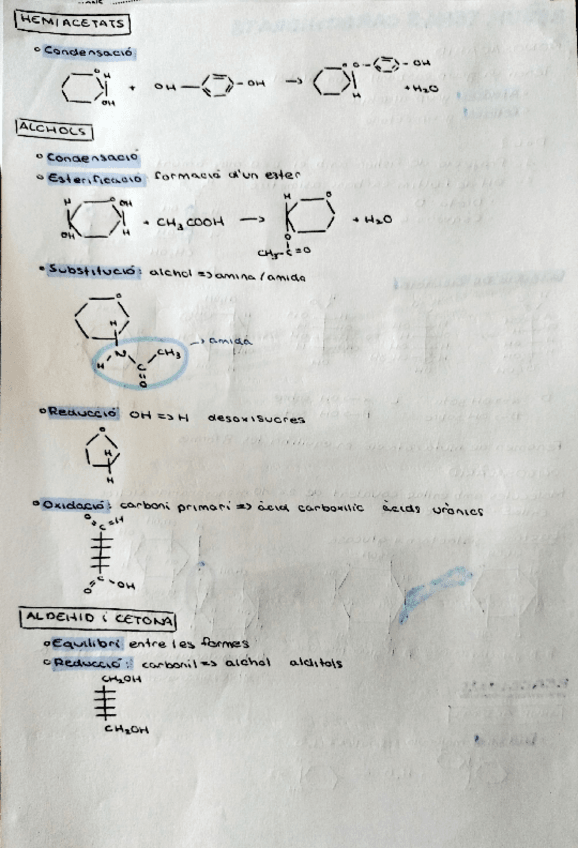 HEMIACETATS
Condensació
O H OH + OH OH → O O OH H + H2O
ALCHOLS
Condensació
Esterificació formació d'un ester
H O OH OH H + CH3COOH → H O O CH3-C=O + H2O
Substitució: alchol => amina/amida
O
H
H N C CH3 O → amida
Reducció OH => H desoxisucres
O
H
H
Oxidació: carboni primari => àcid carboxílic àcids urònics
O C H
O C OH
ALDEHID i CETONA
Equilibri entre les formes
Reducció: carbonil => alchol alditols
CH2OH
CH2OH